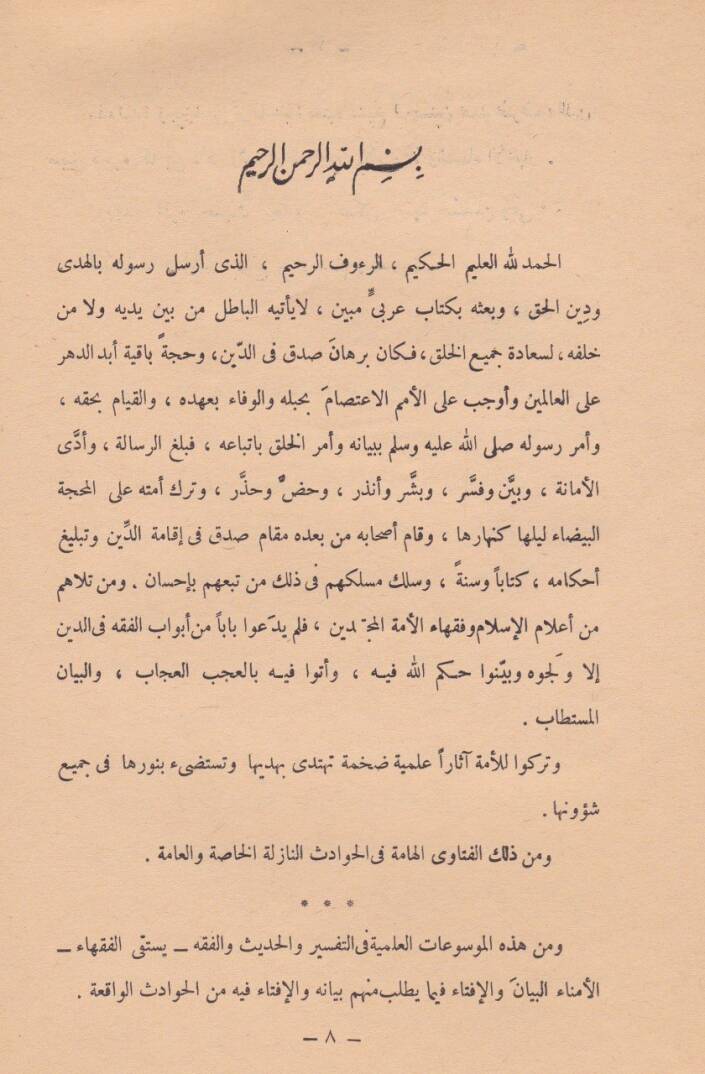 بسم الله الرحمن الرحيم
الحمد لله العليم الحكيم ، الرءوف الرحيم ، الذى أرسل رسوله بالهدى
ودِين الحق ، وبعثه بكتاب عربىٍّ مبين ، لايأتيه الباطل من بين يديه ولا من
خلفه ، لسعادة جميع الخلق ، فكان برهانَ صدق فى الدّين ، وحجةً باقية أبد الدهر
على العالمين وأوجب على الأمم الاعتصامَ بحبله والوفاء بعهده ، والقيام بحقه ،
وأمر رسوله صلى الله عليه وسلم ببيانه وأمر الخلق باتباعه ، فبلغ الرسالة ، وأدَّى
الأمانة ، وبيَّن وفسَّر ، وبشَّر وأنذر ، وحضَّ وحذَّر ، وترك أمته على المحجة
البيضاء ليلها كنهارها ، وقام أصحابه من بعده مقام صدق فى إقامة الدِّين وتبليغ
أحكامه ، كتاباً وسنةً ، وسلك مسلكهم فى ذلك من تبعهم بإحسان . ومن تلاهم
من أعلام الإسلام وفقهاء الأمة المجتهدين ، فلم يدَعوا باباً من أبواب الفقه فى الدين
إلا وَلجوه وبيّنوا حكم الله فيه ، وأتوا فيه بالعجب العجاب ، والبيان
المستطاب .
وتركوا للأمة آثاراً علمية ضخمة تهتدى بهديها وتستضىء بنورها فى جميع
شؤونها .
ومن ذلك الفتاوى الهامة فى الحوادث النازلة الخاصة والعامة .
* * *
ومن هذه الموسوعات العلمية فى التفسير والحديث والفقه – يستقى الفقهاء –
الأمناء البيانَ والإفتاء فيما يطلب منهم بيانه والإفتاء فيه من الحوادث الواقعة .
– ٨ –